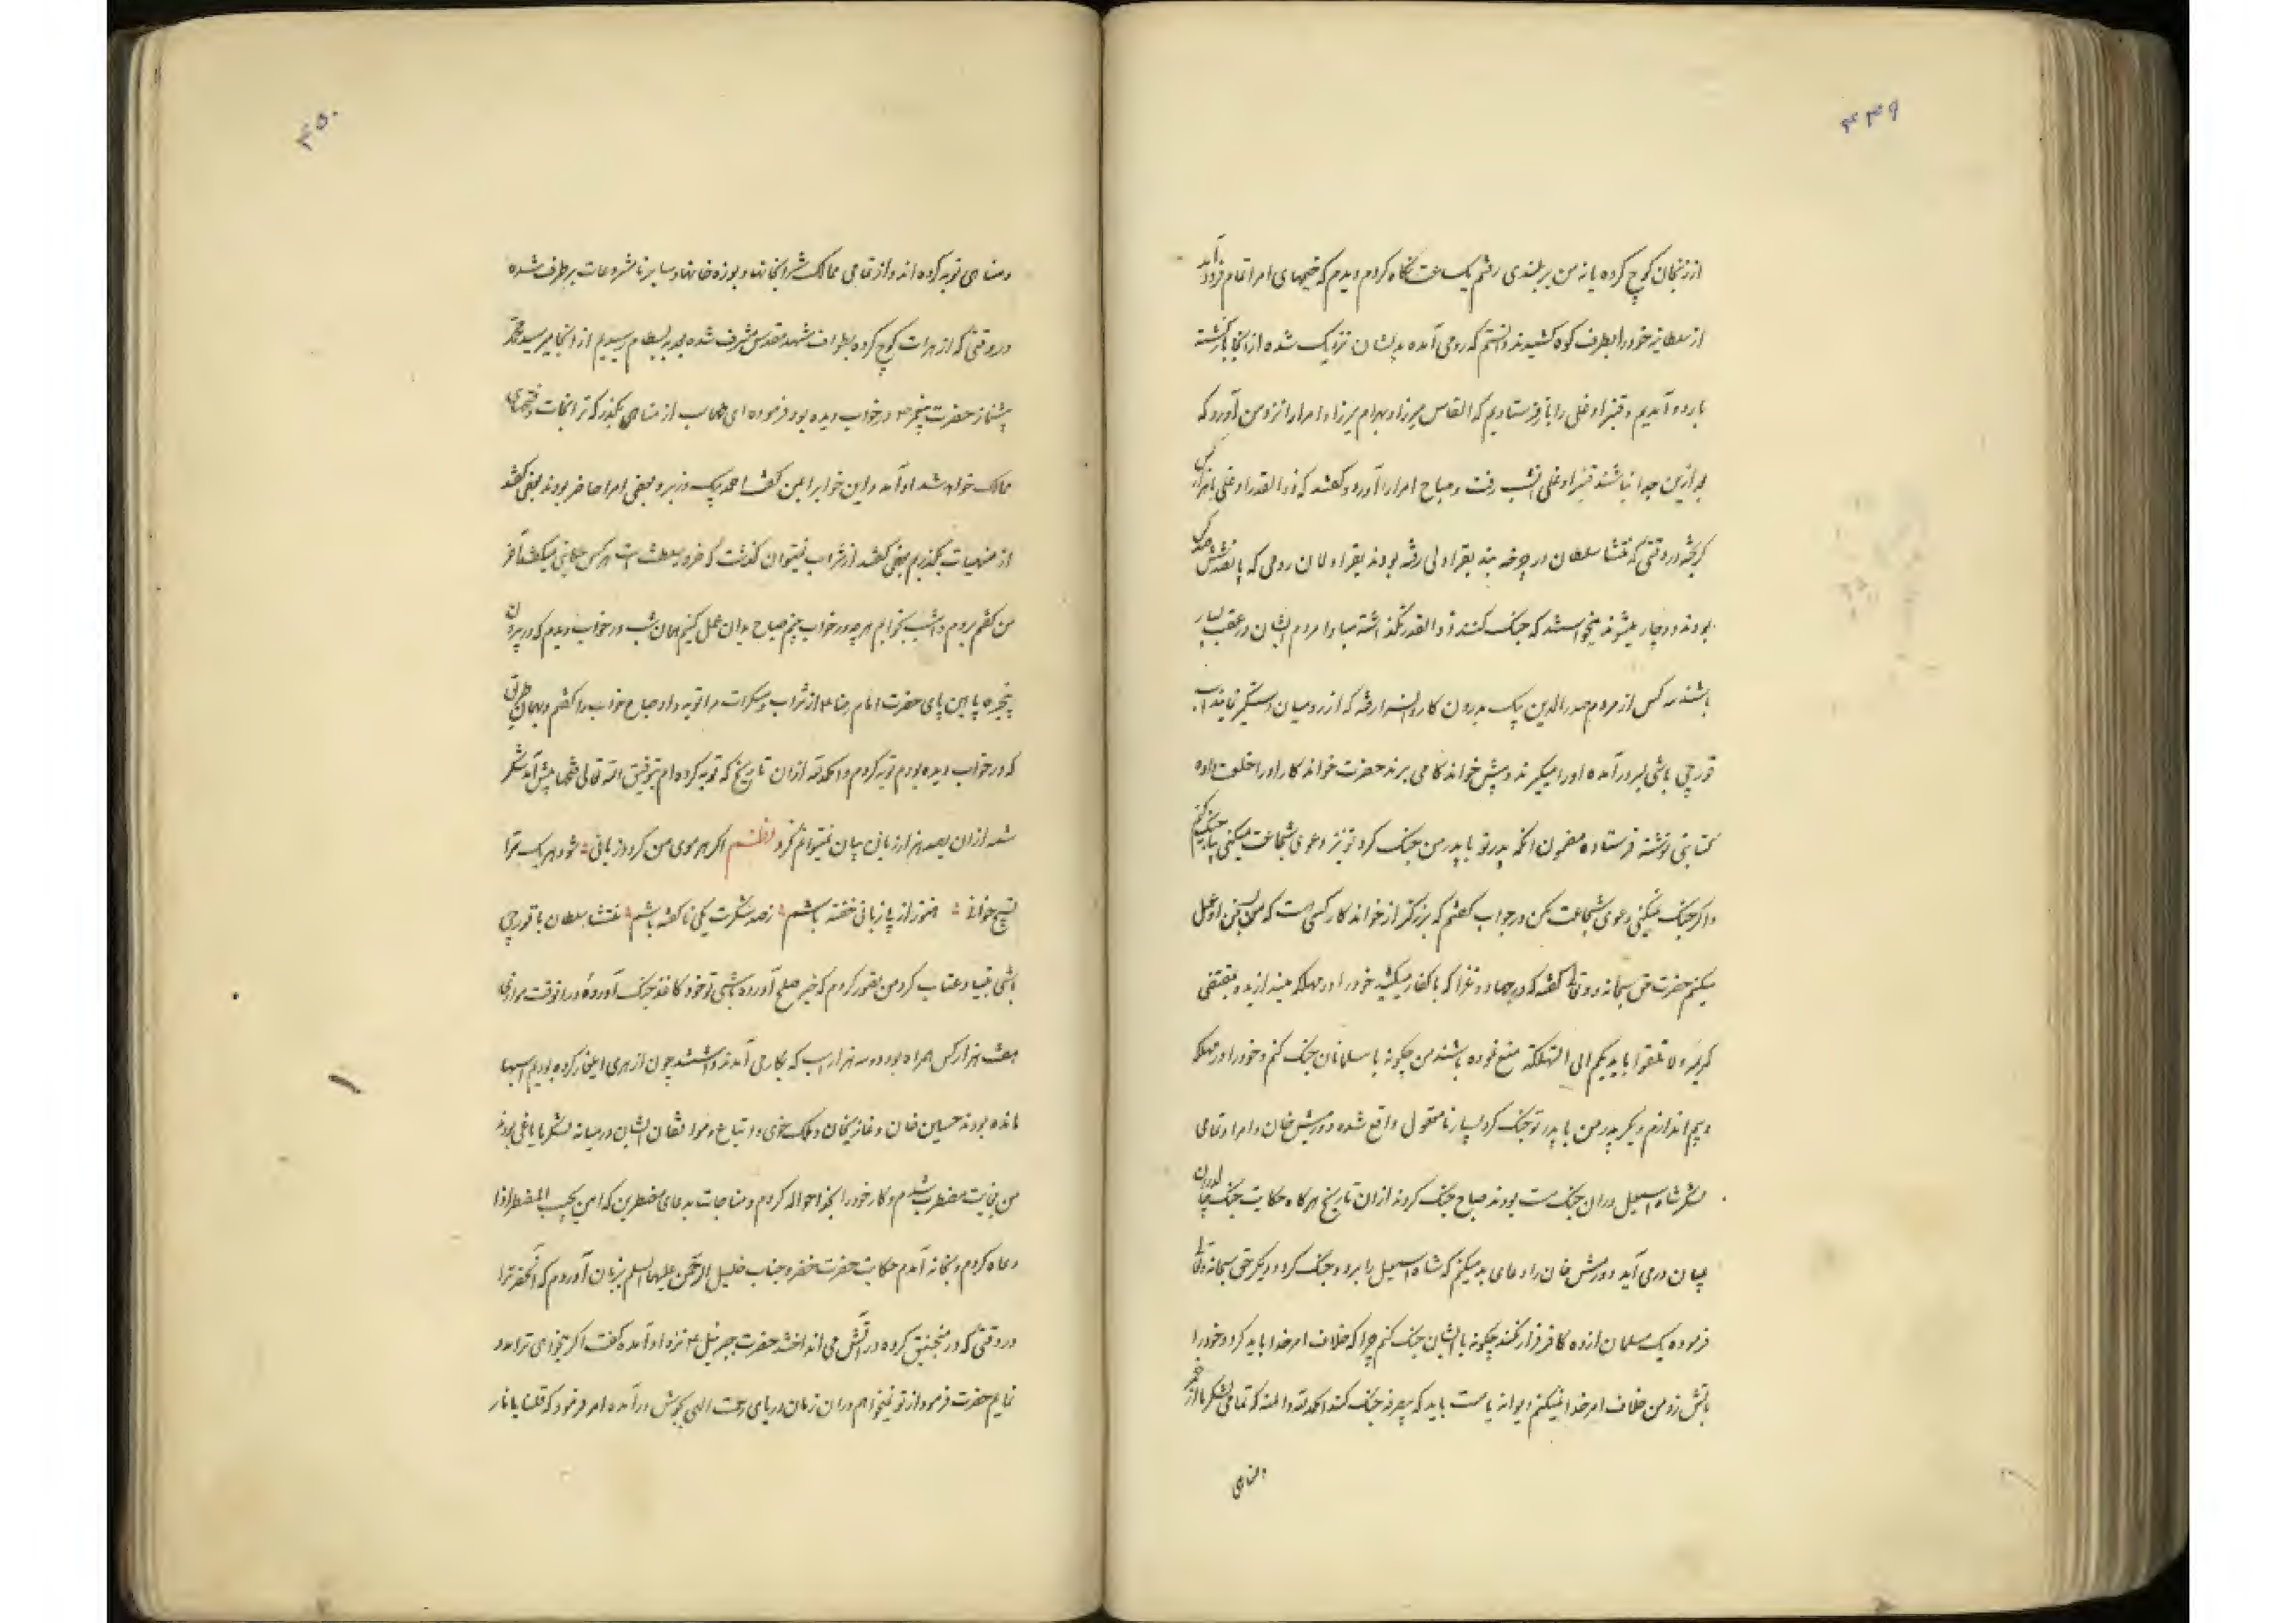 ۴۴۹
از زنجان کوچ کرده یا نه من بر بلندی رفتم یک ساعت نگاه کردم دیدم که خیمهای امرا تمام فرود آمد
از سلطانیه خود را بطرف کوه کشیدند دانستم که رومی آمده بدیشان نزدیک شده از آنجا باز گشته
باردو آمدیم و قنبر اوغلی را باز فرستادیم که القاس میرزا و بهرام میرزا و امرا را نزد من آورد که
بعد ازین جدا نباشند قنبر اوغلی انشب رفت و صباح امرا را آورد و گفتند که ذوالقدر اوغلی با هزار کس
گریخته در وقتی که شاه سلطان در چرخه بند بقراولی رفته بودند بقراولان رومی که پانصد ششصد کس
بودند دوچار میشوند میخواستند که جنک کنند ذوالقدر نگذاشته مبادا مردم ایشان در عقب بسیار
باشند سه کس از مردم صدرالدین بیک بدرون کاروانسرا رفته که از رومیان دستگیر نمایند
قورچی باشی بسر در آمده او را میگیرند و پیش خواندکار می برند حضرت خواندکار او را خلعت داده
کتابتی نوشته فرستاده مضمون آنکه پدر تو با پدر من جنک کرد تو نیز دعوی شجاعت میکنی بیا جنک کنیم
و اگر جنک نمیکنی دعوی شجاعت مکن در جواب گفتم که بزرکتر از خواندکار کسی هست که من بسخن او عمل
میکنم حضرت حق سبحانه و تعالی گفته که در جهاد و غزا که با کفار میکنید خود را در مهلکه میندازید بمقتضی
کریمه ولا تلقوا بایدیکم الی التهلکة منع فرموده باشند من چگونه با مسلمانان جنک کنم و خود را در مهلکه
و بیم اندازم دیگر پدر من با پدر تو جنک کرد بسیار نامعقول واقع شده دورمیش خان و امرا و تمامی
لشکر شاه اسمعیل دران جنک مست بودند صباح جنک کردند از ان تاریخ هرگاه حکایت جنک چالدران
بمیان درمی آید دورمش خان را دعای بد میکنم که شاه اسمعیل را برد و جنک کرد و دیگر حق سبحانه و تعالی
فرموده یک مسلمان از ده کافر فرار نکند چگونه با ایشان جنک کنم چرا که خلاف امر خدا باید کرد و خود را
بآتش زد من خلاف امر خدا نمیکنم دیوانه یا مست باید که بصرفه جنک کند الحمدلله و المنه که تمامی لشکر ما از خمر
المناهی
۴۵۰
و مناهی توبه کرده اند و از تمامی ممالک شرابخانها و بوزه خانها و سایر نامشروعات بر طرف شده
در وقتی که از هرات کوچ کرده بطواف مشهد مقدس مشرف شده بعد ببسطام رسیدیم از انجا میر سید محمد
پیشنماز حضرت پیغمبر ص در خواب دیده بود فرموده ای طهماسب از مناهی بگذر که ترا نجات و فتحهای
ممالک خواهد شد او آمد و این خواب را بمن گفت احمد بیک وزیر و بعضی امرا حاضر بودند بعضی گفتند
از منهیات بگذریم بعضی گفتند از شراب نمیتوان گذشت که ضرور سلطنت است هر کس حکایتی میگفت آخر
من گفتم بروم و امشب بخوابم هر چه در خواب بینم صباح بدان عمل کنیم همان شب در خواب دیدم که در بیرون
پنجره پایین پای حضرت امام رضا ع از شراب و مسکرات مرا توبه داد صباح خواب را گفتم و بهمان طریق
که در خواب دیده بودم توبه کردم و الحمدلله از ان تاریخ که توبه کرده ام بتوفیق الله تعالی فتحها پیش آمد شکر
شمه از ان بصد هزار زبان بیان نمیتوانم کرد نظم اگر هر موی من گردد زبانی شود هر یک ترا
تسبیح خوانی هنوز از پا زبانی خفته باشم ز صد شکرت یکی ناگفته باشم شاه سلطان با قورچی
باشی بنیاد عتاب کرد من تصور کردم که خبر صلح آورده باشی تو خود کاغذ جنک آوردهٔ در انوقت موازی
هفت هزار کس همراه بود و سه هزار اسب که بکار می آمدند داشتند چون از هری ایلغار کرده بودیم اسبها
مانده بودند حسین خان و غازیخان و ملک خوی و اتباع و موافقان ایشان در میانه لشکر با یاغی بودند
من بغایت مضطرب شدم و کار خود را بخدا حواله کردم و مناجات بدعای مضطرین که امن یجیب المضطر اذا
دعاه کردم و بخانه آمدم حکایت حضرت خضر و جناب خلیل الرحمن علیهما السلم بزبان آوردم که آنحضرت را
در وقتی که در منجنیق کرده در آتش می انداختند حضرت جبرئیل ع نزد او آمده گفت اگر بخواهی ترا مدد
نمایم حضرت فرمود از تو نمیخواهم دران زمان دریای رحمت الهی بجوش درآمده امر فرمود که قلنا یا نار